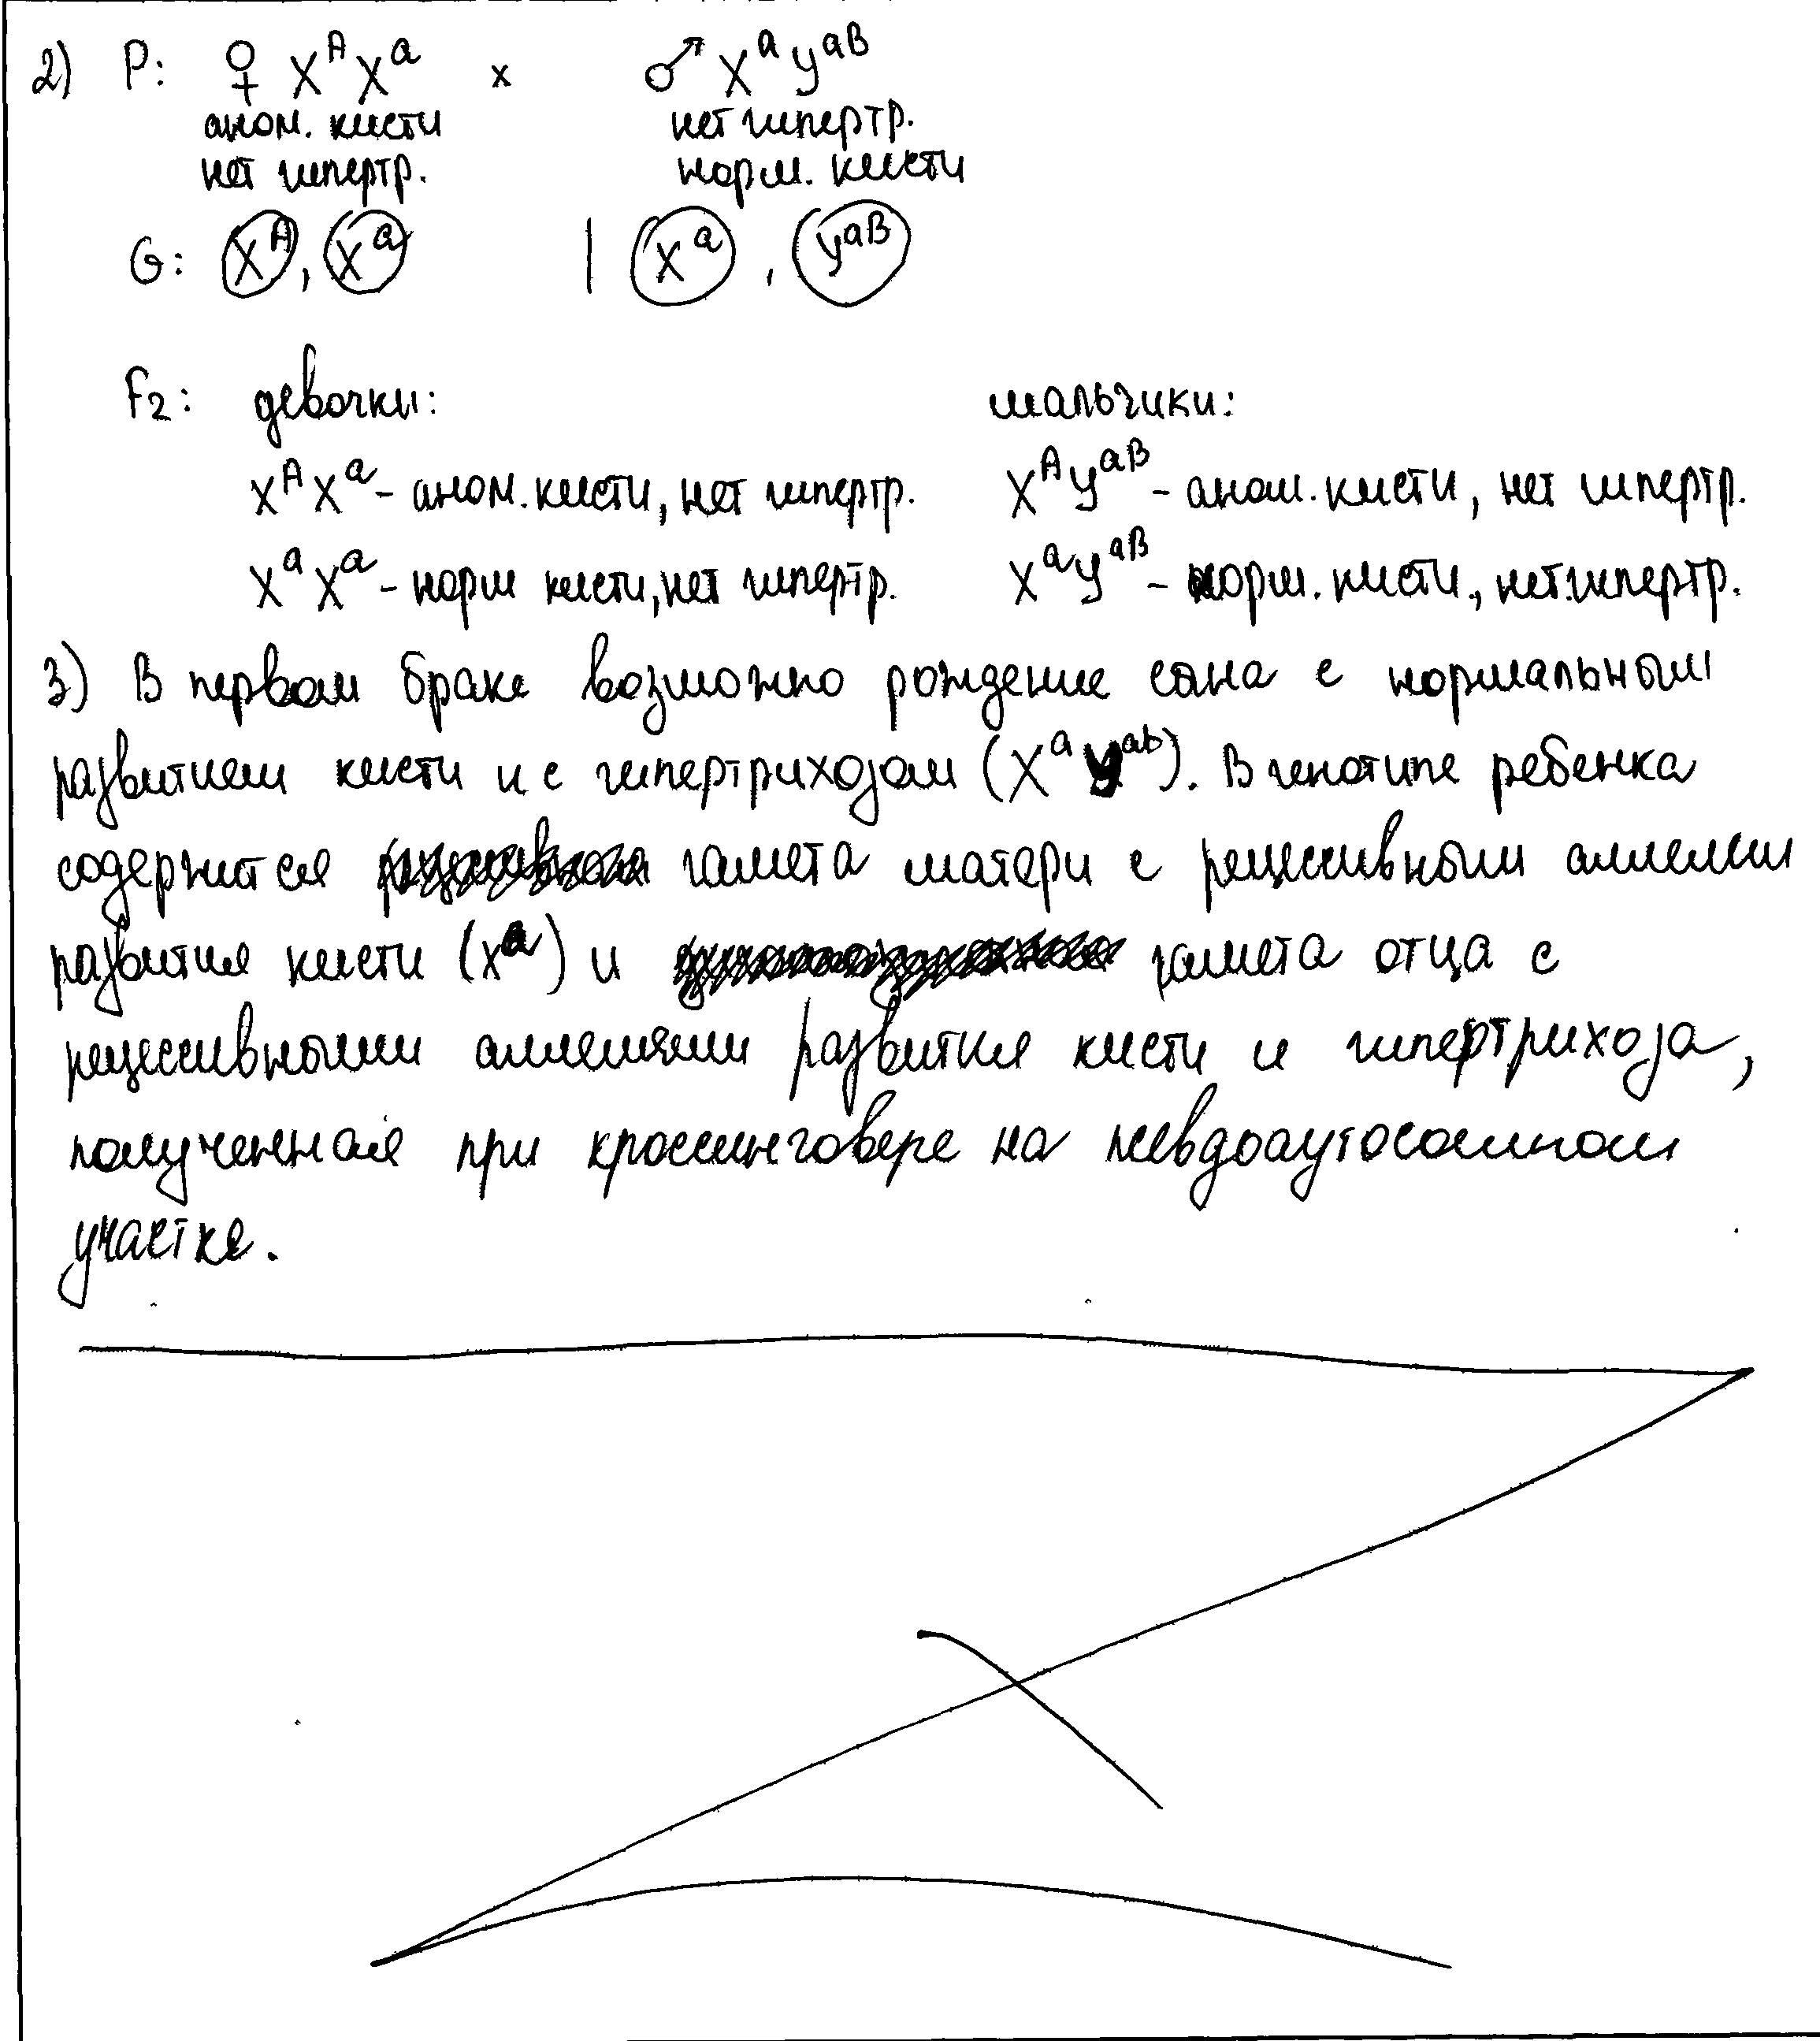 2) P: ♀ X^A X^a x ♂ X^a Y^aB
аном. кисти нет гипертр.
нет гипертр. норм. кисти
G: X^A, X^a | X^a, Y^aB
F2: девочки: мальчики:
X^A X^a - аном. кисти, нет гипертр. X^A Y^aB - аном. кисти, нет гипертр.
X^a X^a - норм кисти, нет гипертр. X^a Y^aB - норм. кисти, нет гипертр.
3) В первом браке возможно рождение сына с нормальным
развитием кисти и с гипертрихозом (X^a Y^ab). В генотипе ребенка
содержится гамета матери с рецессивным аллелем
развития кисти (X^a) и гамета отца с
рецессивными аллелями развития кисти и гипертрихоза,
полученная при кроссинговере на псевдоаутосомном
участке.